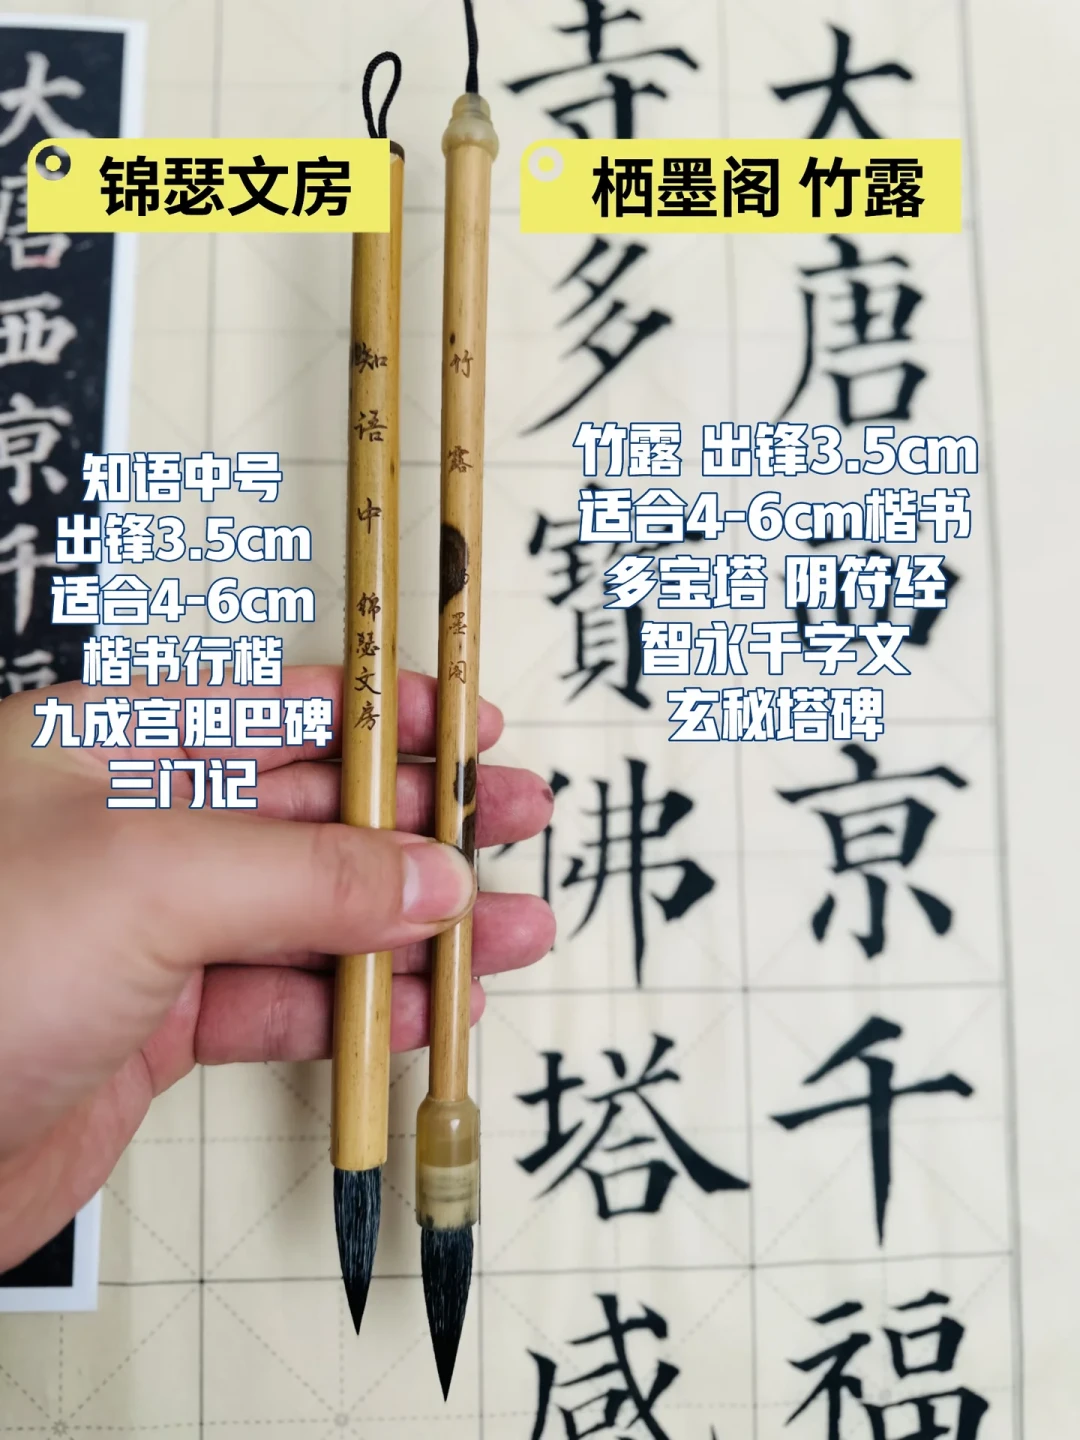 锦瑟文房
栖墨阁 竹露
知语中号
出锋3.5cm
适合4-6cm
楷书行楷
九成宫胆巴碑
三门记
竹露 出锋3.5cm
适合4-6cm楷书
多宝塔 阴符经
智永千字文
玄秘塔碑
知语中 锦瑟文房
竹露 栖墨阁
大唐西京千福
大唐西京千福
寺多寶佛塔感